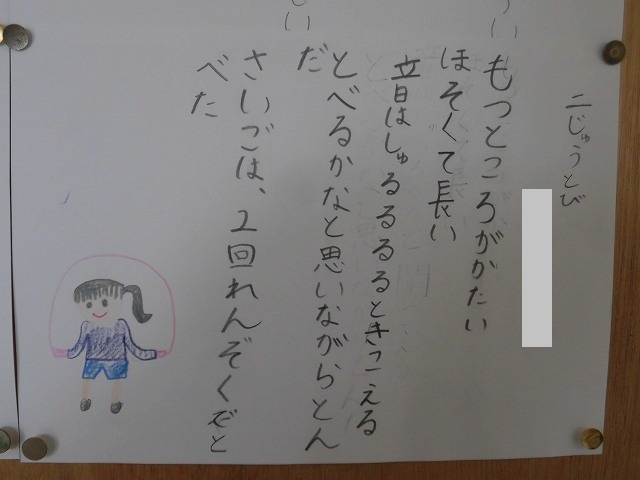 二じゅうとび
もつところがかたい
ほそくて長い
音はしゅるるるるときこえる
とべるかなと思いながらとん
だ
さいごは、2回れんぞくでと
べた